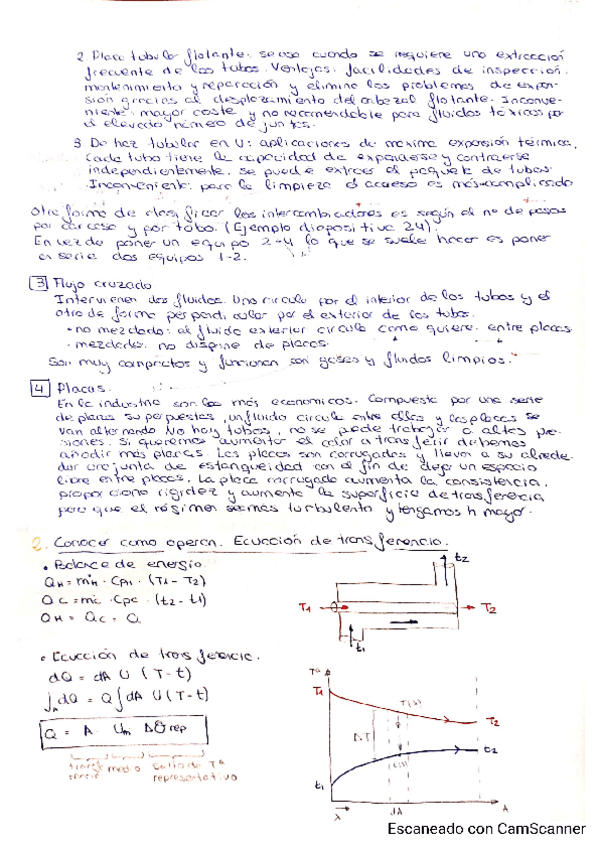 2. Placa tubular flotante: se usa cuando se requiere una extracción
frecuente de los tubos. Ventajas: facilidades de inspección,
mantenimiento y reparación y elimina los problemas de expan-
sión gracias al desplazamiento del cabezal flotante. Inconve-
niente: mayor coste y no recomendable para fluidos tóxicos por
el elevado número de juntas.
3. De haz tubular en U: aplicaciones de máxima expansión térmica.
Cada tubo tiene la capacidad de expandirse y contraerse
independientemente. Se puede extraer el paquete de tubos.
Inconveniente: para la limpieza el acceso es más complicado
Otra forma de clasificar los intercambiadores es según el nº de pasos
por carcasa y por tubo. (Ejemplo diapositiva 24).
En vez de poner un equipo 2-4 lo que se suele hacer es poner
en serie dos equipos 1-2.
3 Flujo cruzado
Intervienen dos fluidos. Uno circula por el interior de los tubos y el
otro de forma perpendicular por el exterior de los tubos.
• no mezclado: al fluido exterior circula como quiere entre placas.
• mezclado: no dispone de placas.
Son muy compactos y funcionan con gases y fluidos limpios.
4 Placas.
En la industria son los más económicos. Compuesta por una serie
de placas superpuestas, un fluido circula entre ellas y las placas se
van alternando. No hay tubos, no se puede trabajar a altas pre-
siones. Si queremos aumentar el calor a transferir debemos
añadir más placas. Las placas son corrugadas y llevan a su alrede-
dor una junta de estanqueidad con el fin de dejar un espacio
libre entre placas. La placa corrugada aumenta la consistencia,
proporciona rigidez y aumenta la superficie de transferencia
para que el régimen sea más turbulento y tengamos h mayor.
2. Conocer como operan. Ecuación de transferencia.
• Balance de energía
QH = mH · CPH · (T1 - T2)
QC = mC · CPC · (t2 - t1)
QH = QC = Q
t2
T1
T2
t1
• Ecuación de transferencia.
dQ = dA U (T - t)
∫A dQ = Q ∫ dA U (T - t)
Q = A · Um Δθrep
medio
Salto de Tª
representativo
Tª
T1
T2
ΔT
t2
t1
dA
A
Escaneado con CamScanner